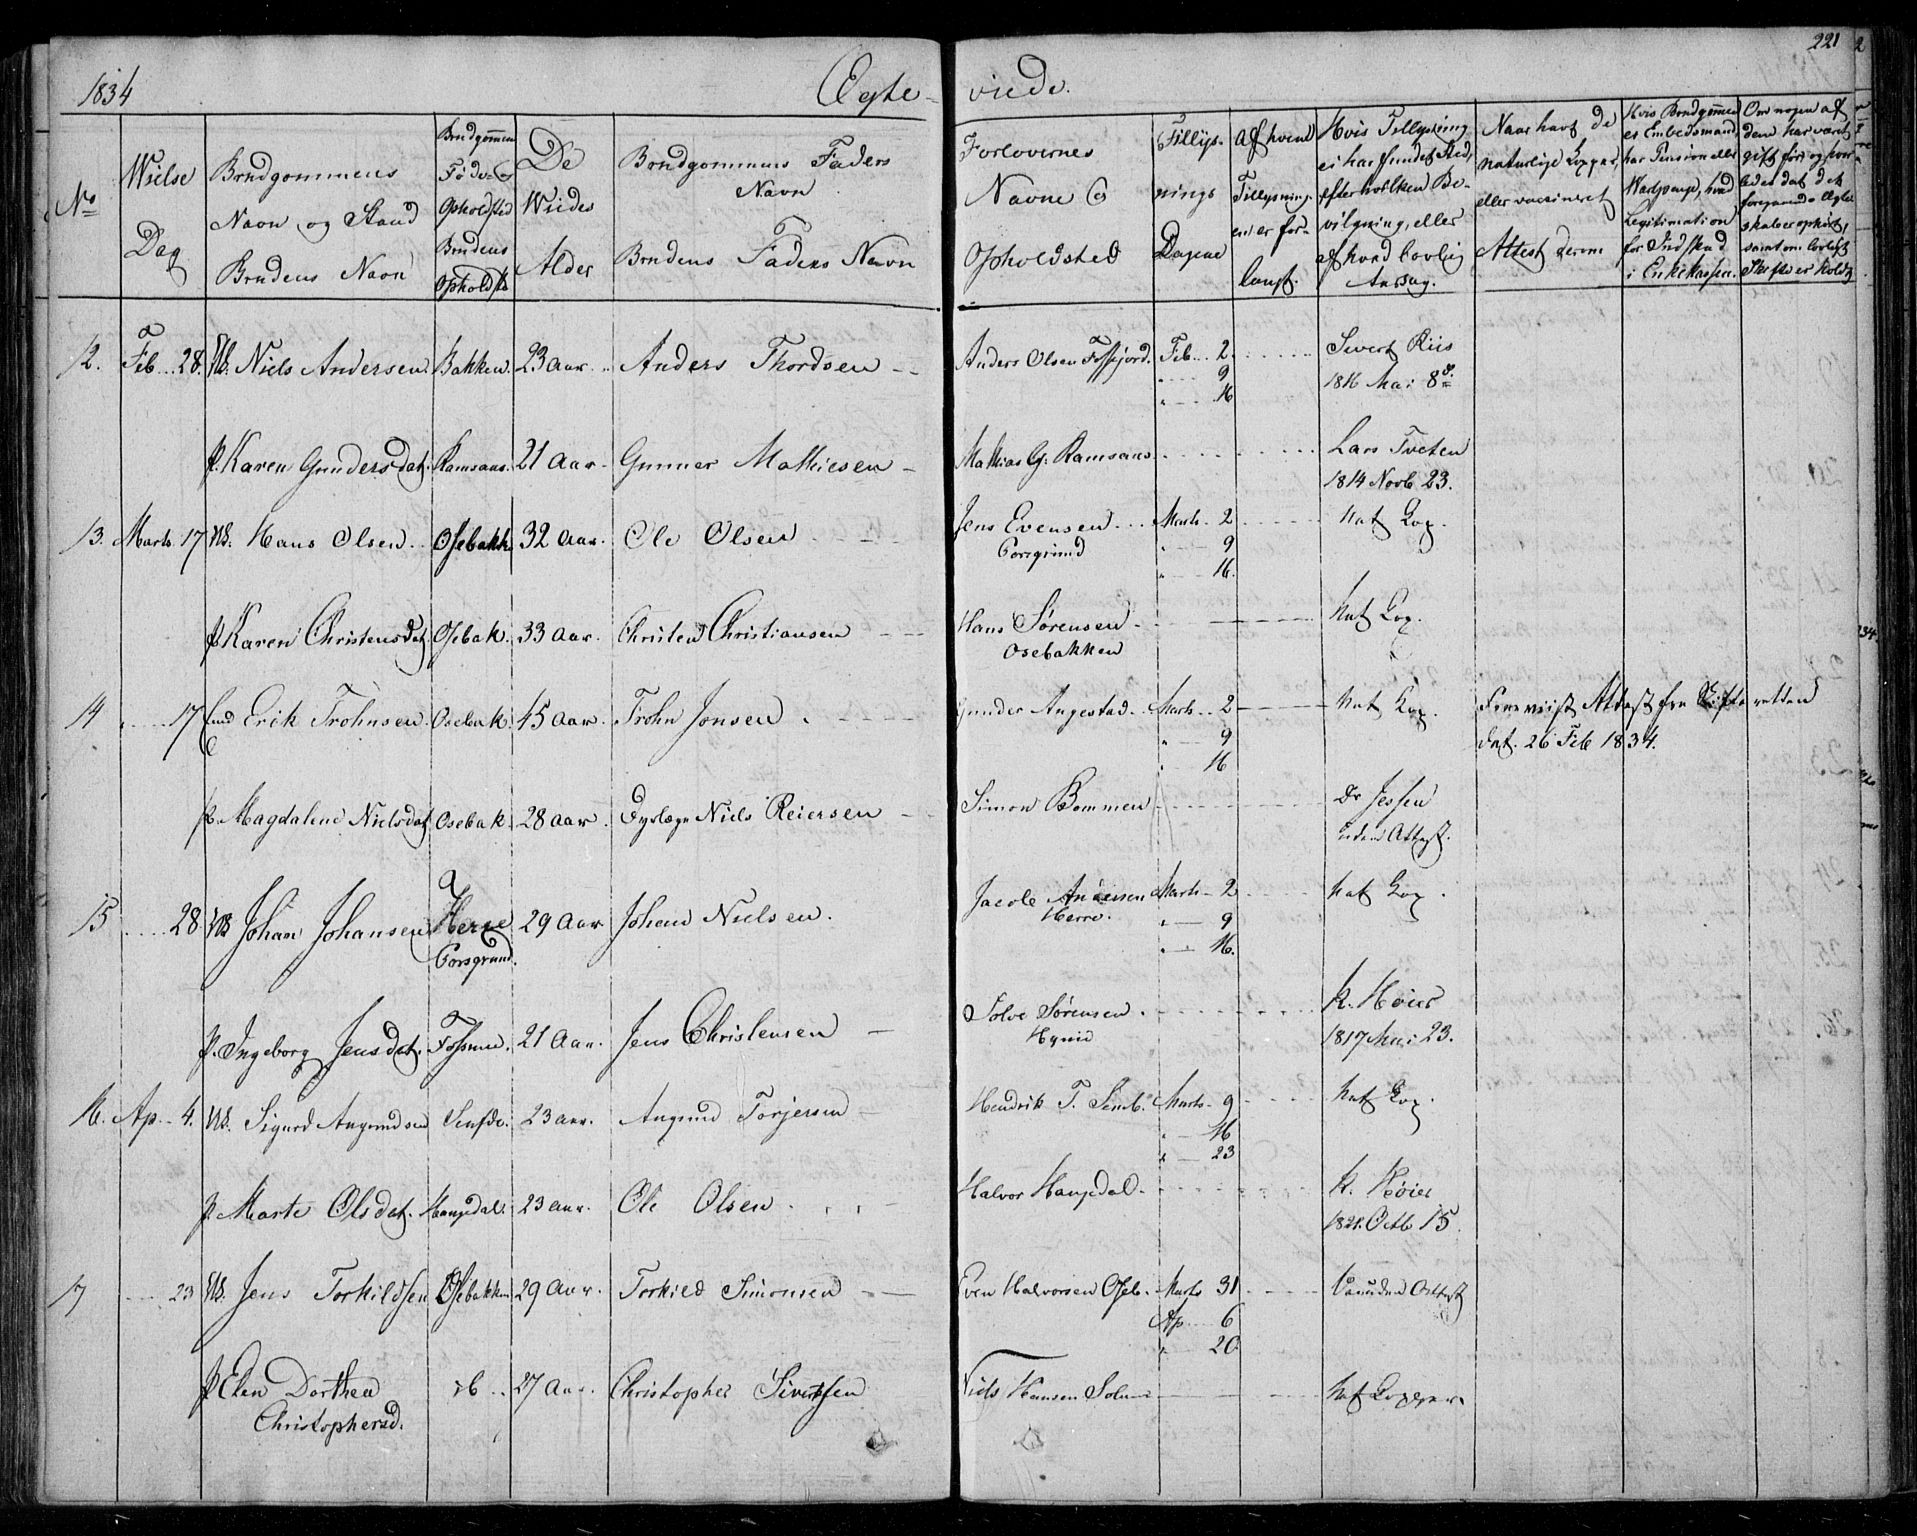 221
1834 Ægte- viede.
No
Vielse Dag
Brudgommens Navn og Stand
Brudens Navn
Brudgommens Føde & Opholdsted
Brudens Opholdstd
De Viedes Alder
Brudgommens Faders Navn
Brudens Faders Navn
Forlovernes Navne & Opholdsted
Tillysnings Dagene
Af hvem Tillysningen er forlangt.
Hvis Tillysning ei har fundet Sted, efter hvilken Bevilgning, eller af hvad lovlig Aarsag.
Naar havt de naturlige Kopper, eller vaccineret Attest derom
Hvis Brudgommen er Embedsmand, har Pension eller Vartpenge, hvad Legitimation for Indskud i Enkekassen.
Om nogen af dem har været gift før og hvorledes det foregaaende Ægteskab er ophørt, samt om lovligt Skifte er holdt
12. Feb 28. Niels Andersen Bakken. 23 Aar. Anders Thordsen Anders Olsen Fossjord. Feb. 2 Sivert Riis
9 1816 Mai 8
16
p. Karen Gundersdat. Ramsaas. 21 Aar. Gunner Mathiesen Mathias G. Ramsaas Lars Tveten
1814 Novb 23.
13. Marts 17 Hans Olsen Osebakk 32 Aar. Ole Olsen Jens Evensen Marts 2 Nat Kop.
Porsgrund 9
16.
p. Karen Christensdat Osebak. 33 Aar. Christen Christiansen Hans Sørensen Nat Kop.
Osebakken
14 17 Erik Trohnsen Osebak. 45 Aar. Trohn Jonsen Gunder Augestad Marts 2 Nat Kop. Foreviist Attest fra Skifteretten
9 dat. 26 Feb 1834.
16
p. Magdalene Nielsdat Osebak. 28 Aar. Niels Reiersen Simon Bommen Dr Jessen
uden Attest.
15 28 Johan Johansen Herre 29 Aar Johan Nielsen. Jacob Andersen Marts 2 Nat Kop.
Porsgrund. Herre. 9
16.
p. Ingeborg Jensdat. Fossum. 21 Aar. Jens Christensen Solve Sørensen K. Høier
1817 Mai 23.
16. Ap. 4. Sigurd Augundsen 23 Aar. Augund Torjersen Hendrik T. Marts 9 Nat Kop.
16
23
p. Marte Olsdat. Haugedal 23 Aar. Ole Olsen Halvor Haugedal. K. Høier
1821. Octb 15.
17 23 Jens Torkildsen Osebakken 29 Aar. Torkild Simonsen Even Halvorsen Oseb. Marts 31 Attest
Ap. 6
20
p. Elen Dorthea ib 27 Aar. Christopher Sivertsen Niels Hansen Nat Kopper.
Christophersd.